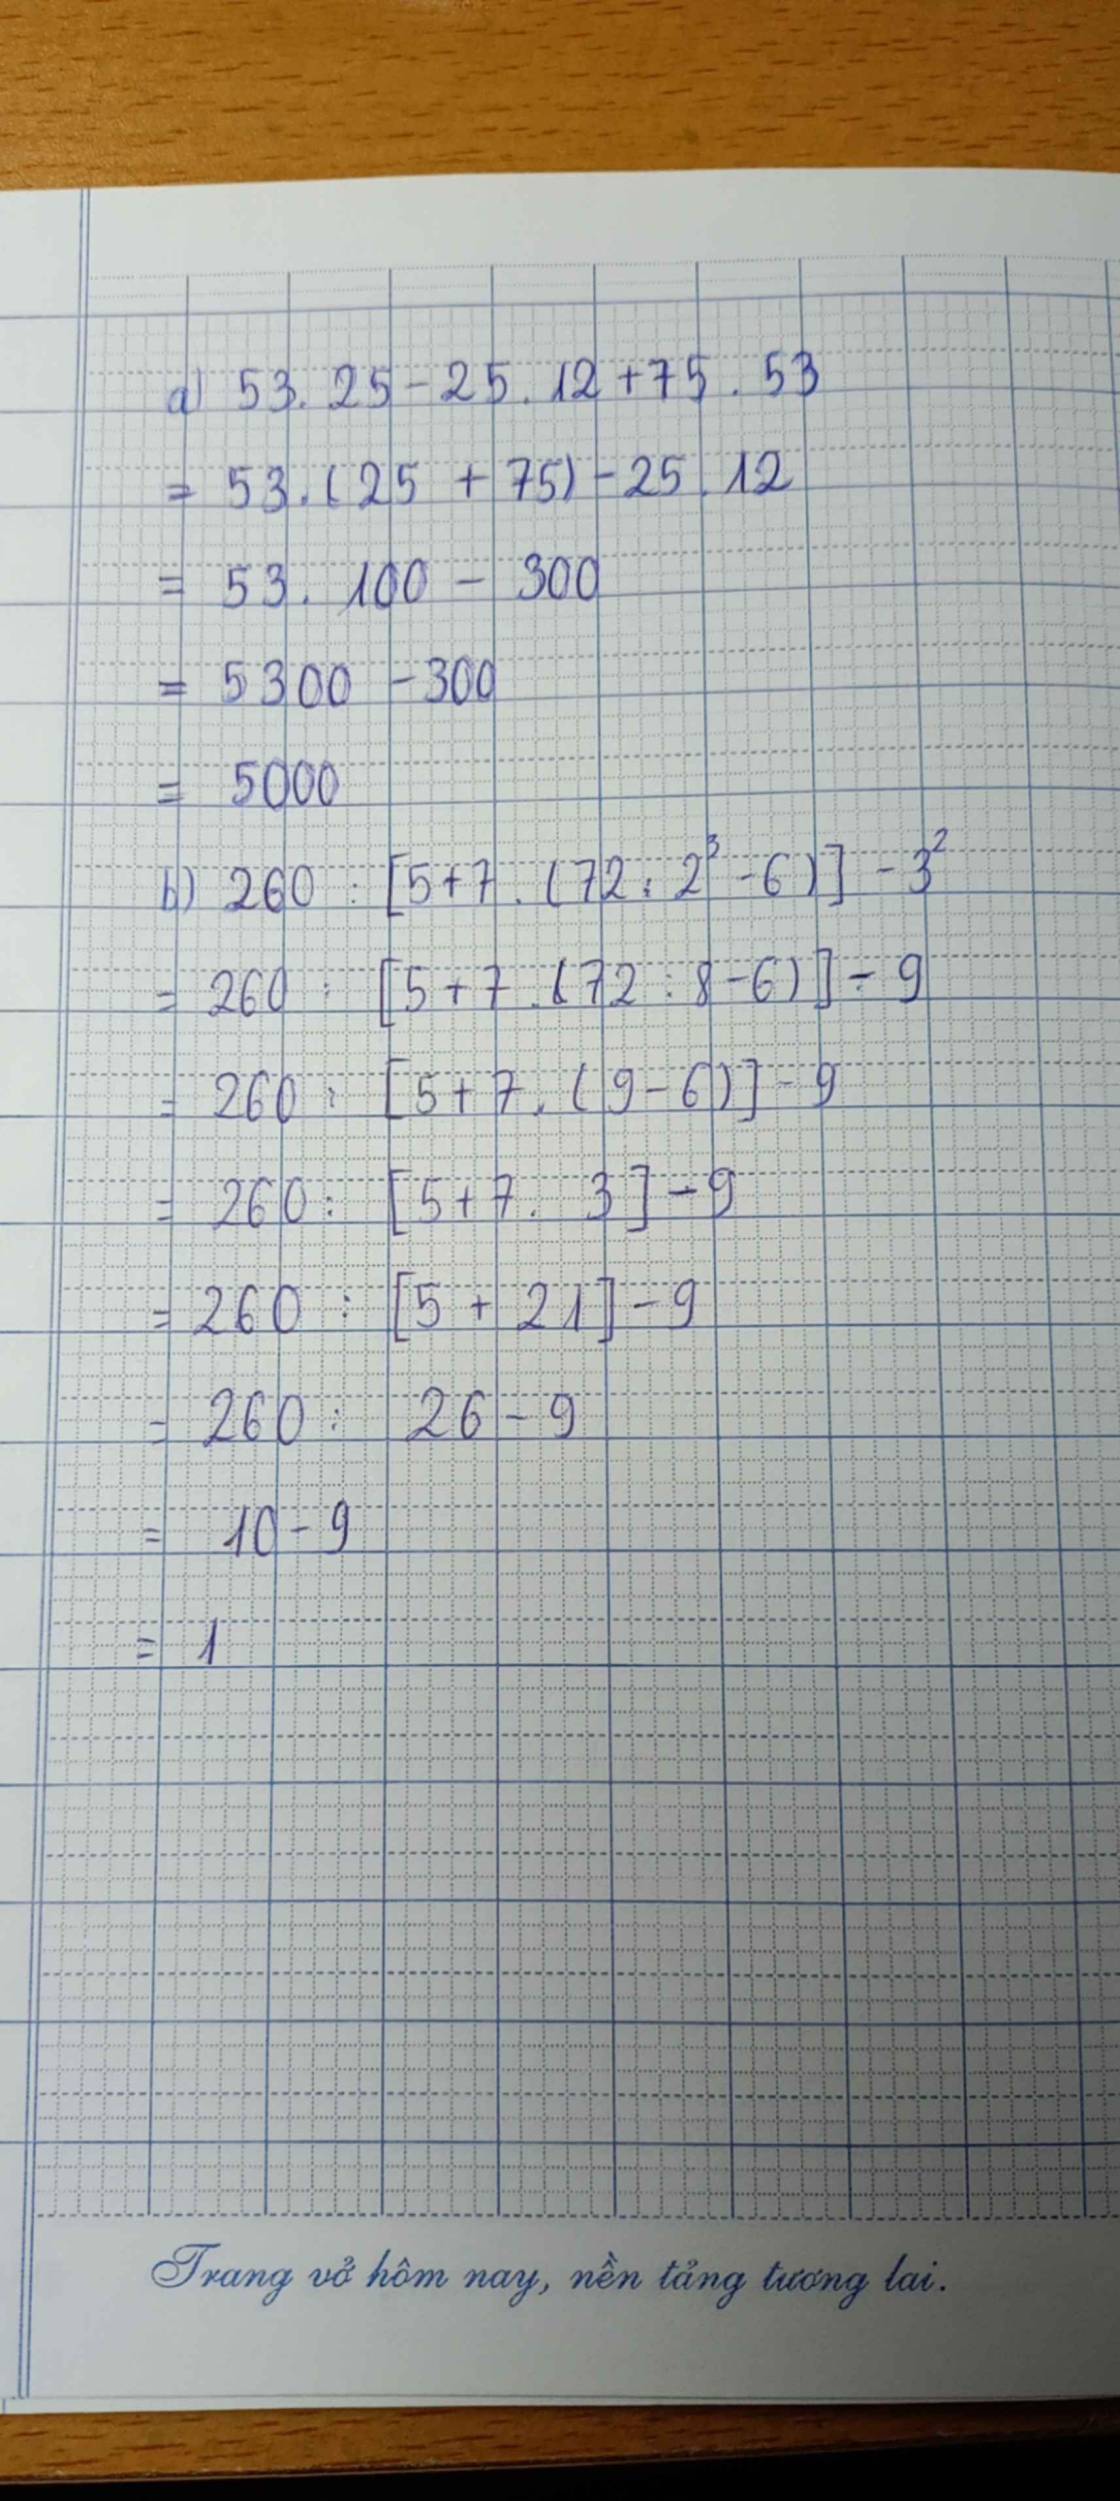 a) 53. 25 - 25. 12 + 75. 53
= 53. (25 + 75) - 25. 12
= 53. 100 - 300
= 5300 - 300
= 5000
b) 260 : [5+7. (72 : 2³ - 6)] - 3²
= 260 : [5+7. (72 : 8 - 6)] - 9
= 260 : [5+7. (9 - 6)] - 9
= 260 : [5+7. 3] - 9
= 260 : [5 + 21] - 9
= 260 : 26 - 9
= 10 - 9
= 1
Trang vở hôm nay, nền tảng tương lai.